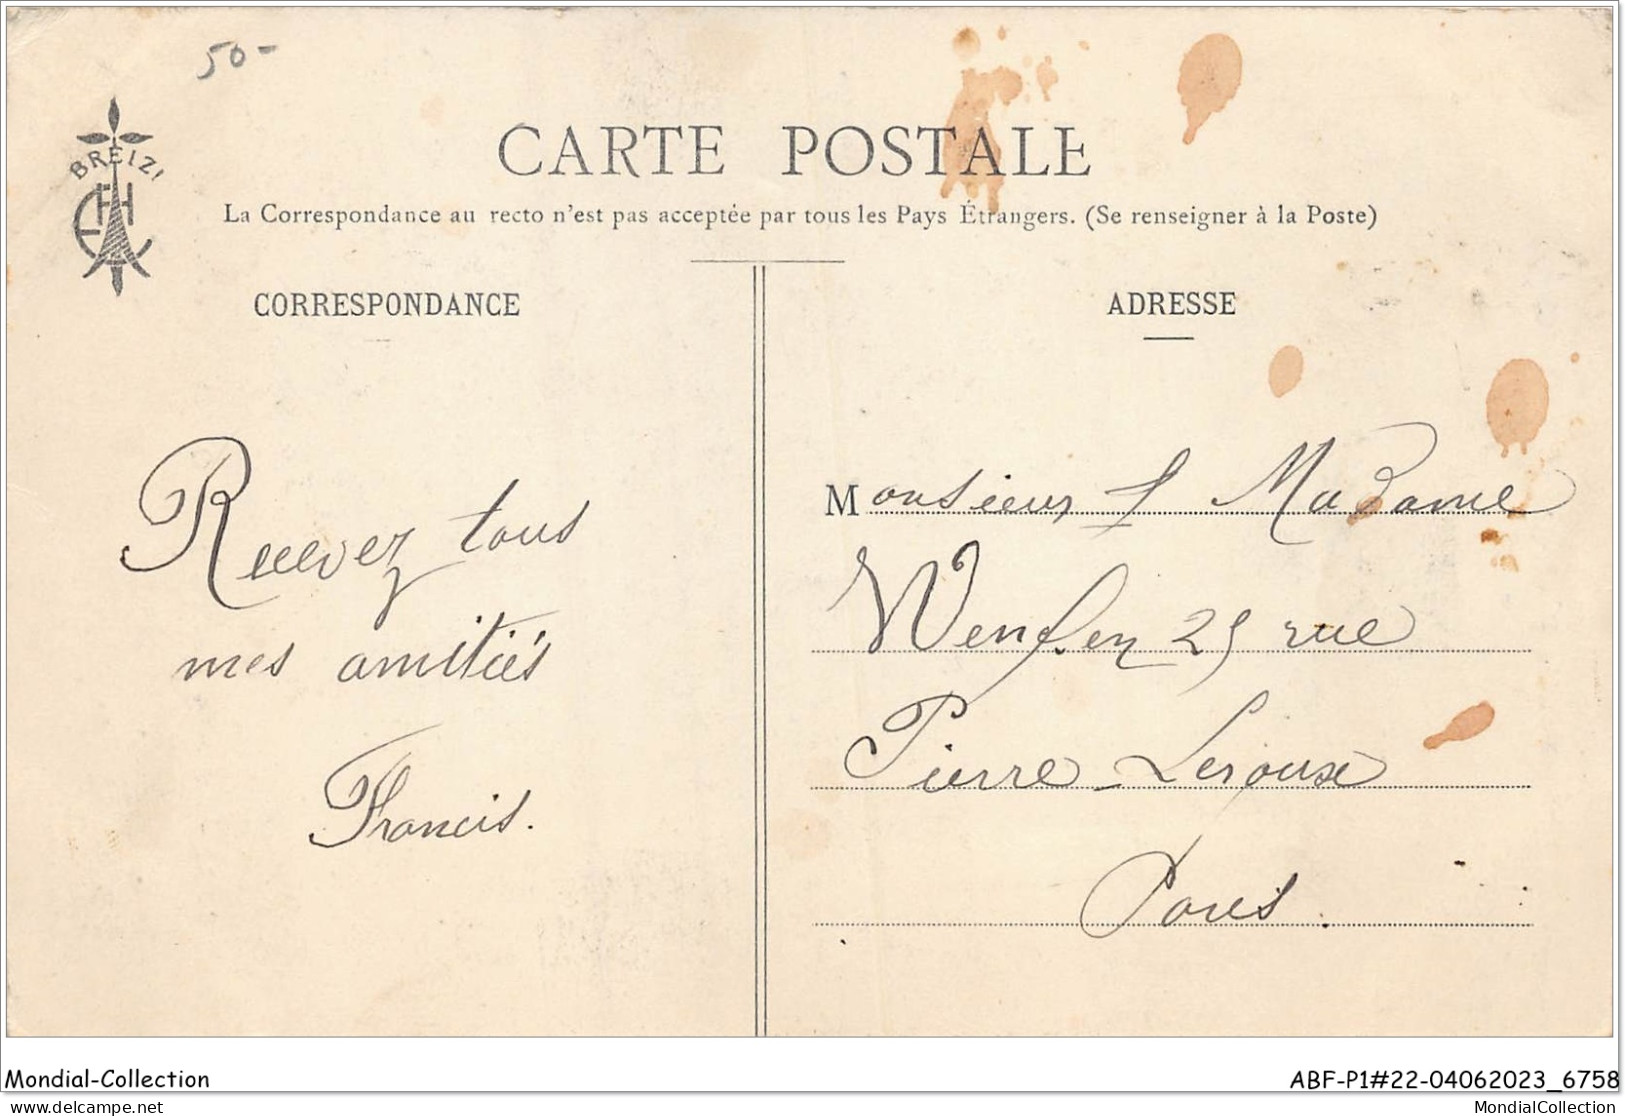 50-
BREIZ!
CARTE POSTALE
La Correspondance au recto n'est pas acceptée par tous les Pays Étrangers. (Se renseigner à la Poste)
CORRESPONDANCE
Recevez tous
mes amitiés
Francis.
ADRESSE
Monsieur & Madame
25 rue
Pierre Leroux
Paris.
Mondial-Collection
ABF-P1#22-04062023_6758
MondialCollection.net
MondialCollection